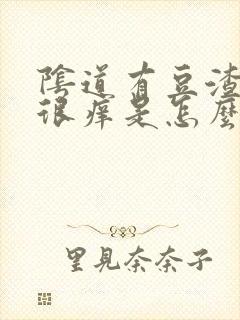 陰道有豆渣
很痒是怎麼
里見奈奈子